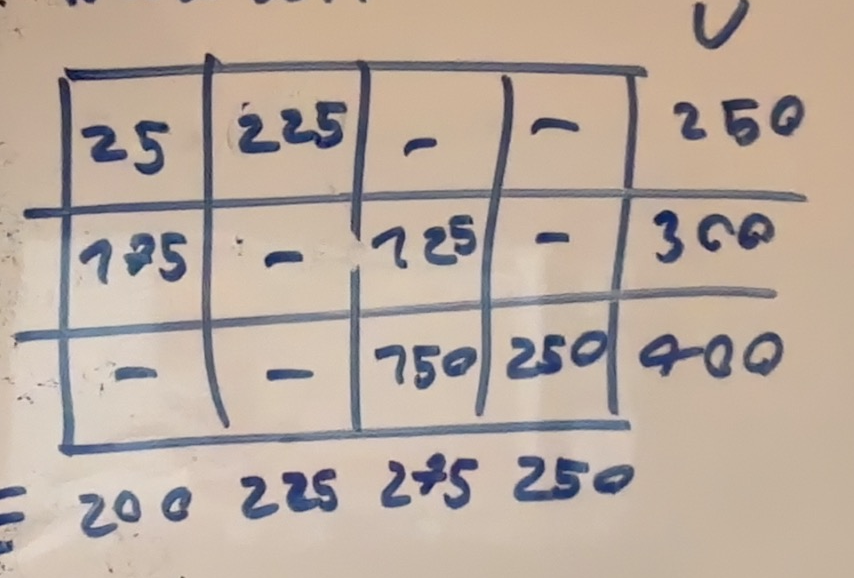 U
25 225 - - 250
175 - 125 - 300
- - 150 250 400
= 200 225 275 250